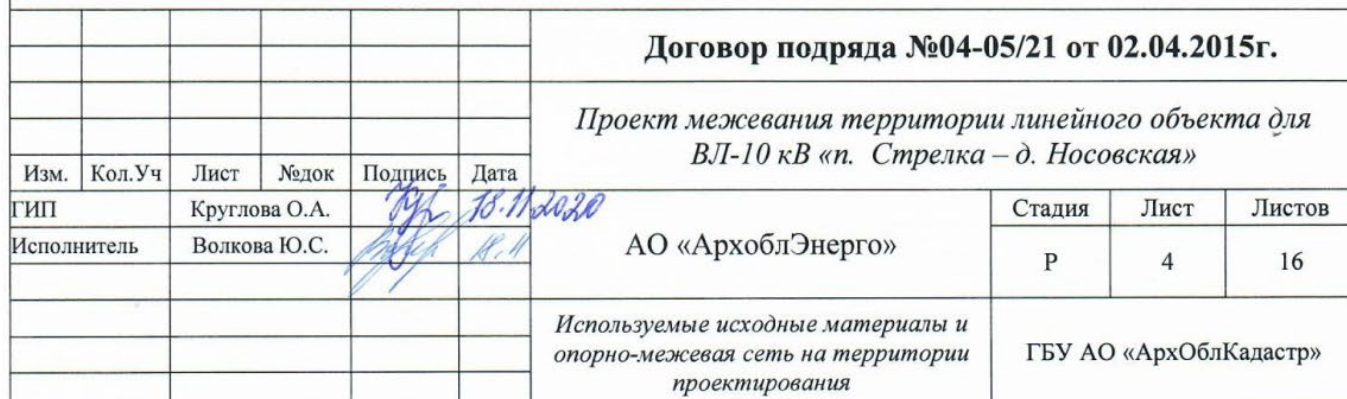 Договор подряда №04-05/21 от 02.04.2015г.
Проект межевания территории линейного объекта для
ВЛ-10 кВ «п. Стрелка – д. Носовская»
Изм. Кол.Уч Лист №док Подпись Дата
ГИП Круглова О.А. 18.11.2020
Исполнитель Волкова Ю.С. 18.11
АО «АрхоблЭнерго»
Стадия Лист Листов
Р 4 16
Используемые исходные материалы и
опорно-межевая сеть на территории
проектирования
ГБУ АО «АрхОблКадастр»